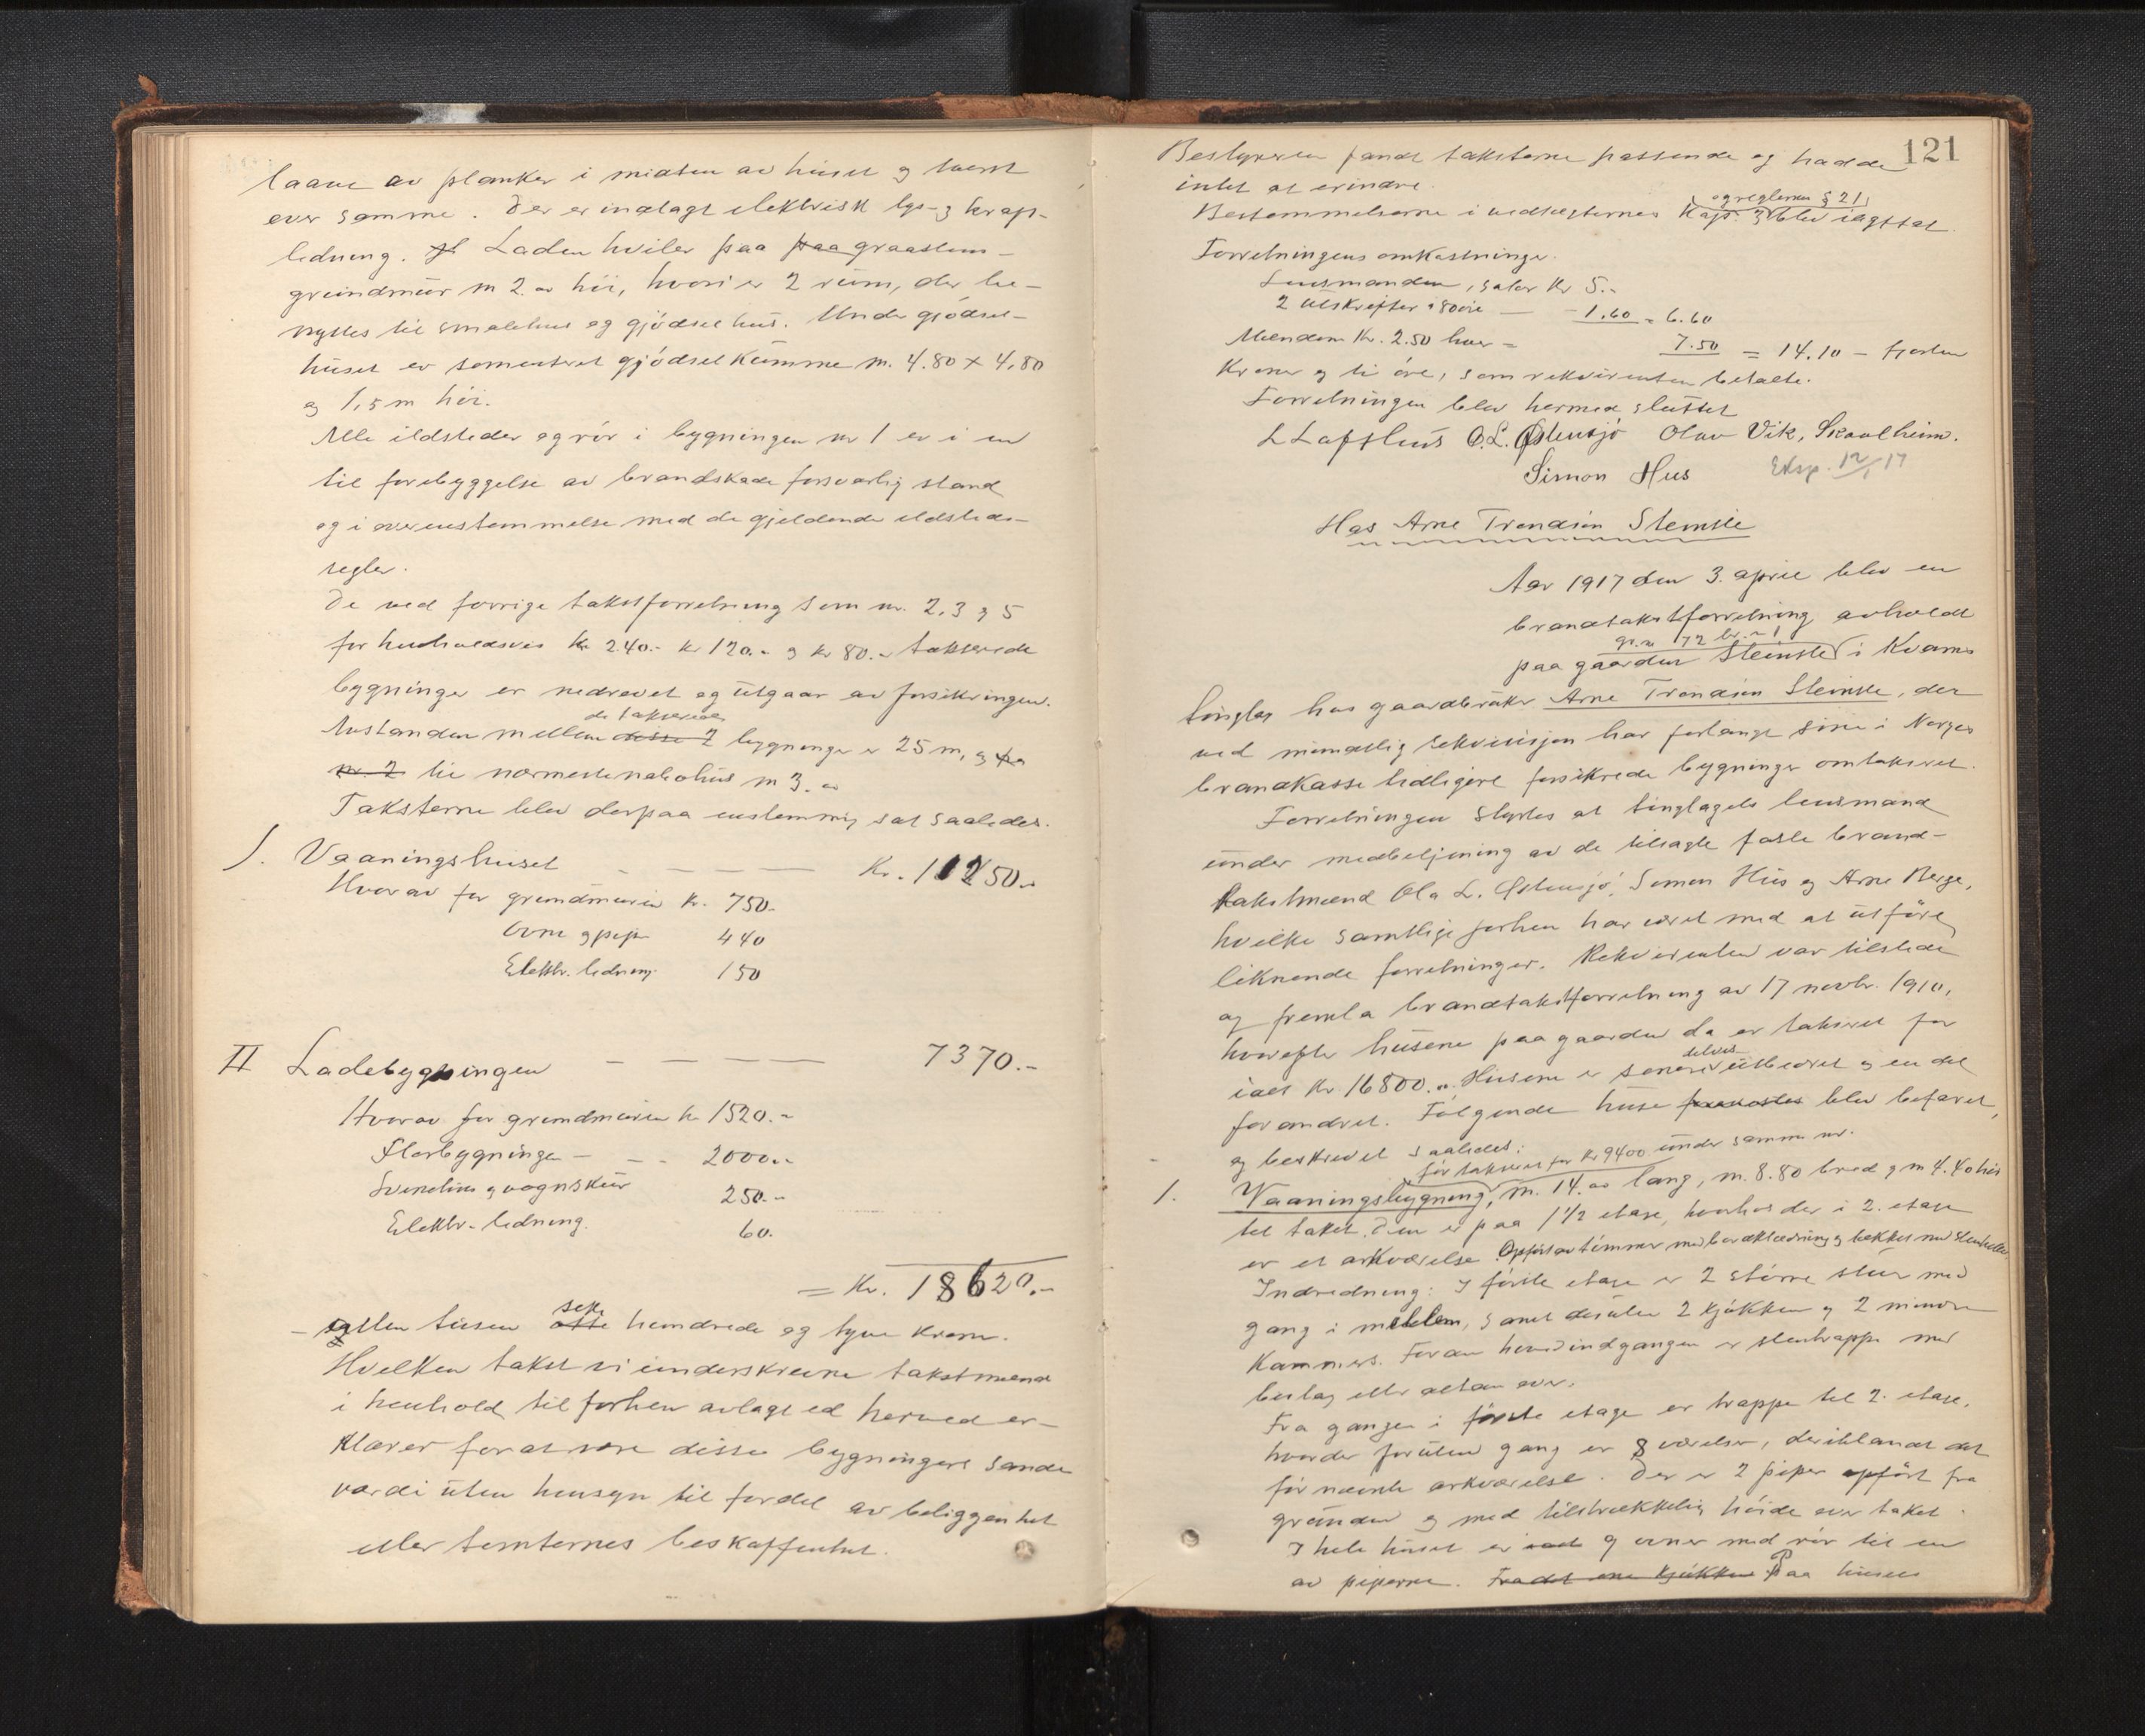 laave av planker i midten av huset og tverst
over samme. Der er indlagt elektrisk lys- og kraft-
ledning. Laden hviler paa paa graastens-
grundmur m 2.00 høi, hvori er 2 rum, der be-
nyttes til smalehus og gjødselhus. Under gjødsel-
huset er sementeret gjødselkumme m. 4.80 x 4.80
og 1,5 m høi.
Alle ildsteder og rør i bygningen nr 1 er i en
til forebyggelse av brandskade forsvarlig stand
og i overensstemmelse med de gjeldende ildsteds-
regler.
De ved forrige takstforretning som nr. 2, 3 og 5
for henholdsvis Kr 240.- Kr 120.- og Kr 80.- takserede
bygninger er nedrevet og utgaar av forsikringen.
de takserede
Avstanden mellem disse 2 bygninger er 25 m, og fra
nr. 2 til nærmeste nabohus m 3.00
Taksterne blev derpaa enstemmig sat saaledes.
I. Vaaningshuset - - - - Kr. 11250.-
Hvorav for grundmuren Kr. 750.-
Ovne og piper 440
Elektr. ledning 150
II Ladebygningen - - - - 7370.-
Hvorav for grundmuren Kr 1520.-
Florbygningen - - - 2000.-
Svinehus og vognskur 250.-
Elektr. ledning. 60.
= Kr. 18620.-
seks
- atten tusen otte hundrede og tyve kroner.
Hvilken takst vi underskrevne takstmænd
i henhold til forhen avlagt ed herved er-
klærer for at være disse bygningers sande
værdi uten hensyn til fordel av beliggenhet
eller tomternes beskaffenhet.
121
Bestyreren fandt taksterne passende og hadde
intet at erindre.
og reglernes § 21
Bestemmelserne i vedtægternes Kap. 3 blev iagttat.
Forretningens omkostninger.
Lensmanden, salær Kr 5.-
2 utskrifter a 80 øre — - 1.60 = 6.60
Mændene Kr. 2.50 hver = 7.50 = 14.10 - fjorten
Kroner og ti øre, som rekvirenten betalte.
Forretningen blev hermed sluttet
L Lofthus O. L. Østensjø Olav Vik, Skaalheim.
Simon Hus Eksp. 12/1 17
Hos Arne Trondsen Steinste
Aar 1917 den 3. april blev en
brandtakstforretning avholdt
gr. nr 72 br. nr 1
paa gaarden Steinste i Kvams
tinglag hos gaardbruker Arne Trondsen Steinste, der
ved mundtlig rekvisisjon har forlangt sine i Norges
brandkasse tidligere forsikrede bygninger omtaksert.
Forretningen styrtes at tinglagets lensmand
under medbetjening av de tilsagte faste brand-
takstmænd Ola L. Østensjø, Simon Hus og Arne Berge,
hvilke samtlige forhen har været med at utføre
liknende forretninger. Rekvirenten var tilstede
og fremla brandtakstforretning av 17 novbr. 1910,
hvorefter husene paa gaarden da er taksert for
delvis
ialt Kr 16800.- Husene er senere utbedret og en del
forandret. Følgende huse blev befaret,
og beskrevet saaledes:
før taksert for Kr 9400 under samme nr.
1. Vaaningsbygning, m. 14.00 lang, m. 8.80 bred og m 4.40 høi
til taket. Den er paa 1 1/2 etage, hvorhos der i 2. etage
er et arkværelse. Opført av tømmer med bordklædning og tækket med stenheller
Indredning: I første etage er 2 større stuer med
gang i mellem, samt desuten 2 kjøkken og 2 mindre
Kammers. Foran hovedindgangen er stentrappe med
beslag eller altan over.
Fra gangen i første etage er trappe til 2. etage,
hvorder foruten gang er 8 værelser, deriblandt det
før nævnte arkværelse. Der er 2 piper opført fra
grunden og med tilstrækkelig høide over taket.
I hele huset er 9 ovner med rør til en
av piperne. Fra det ene kjøkken Paa husets